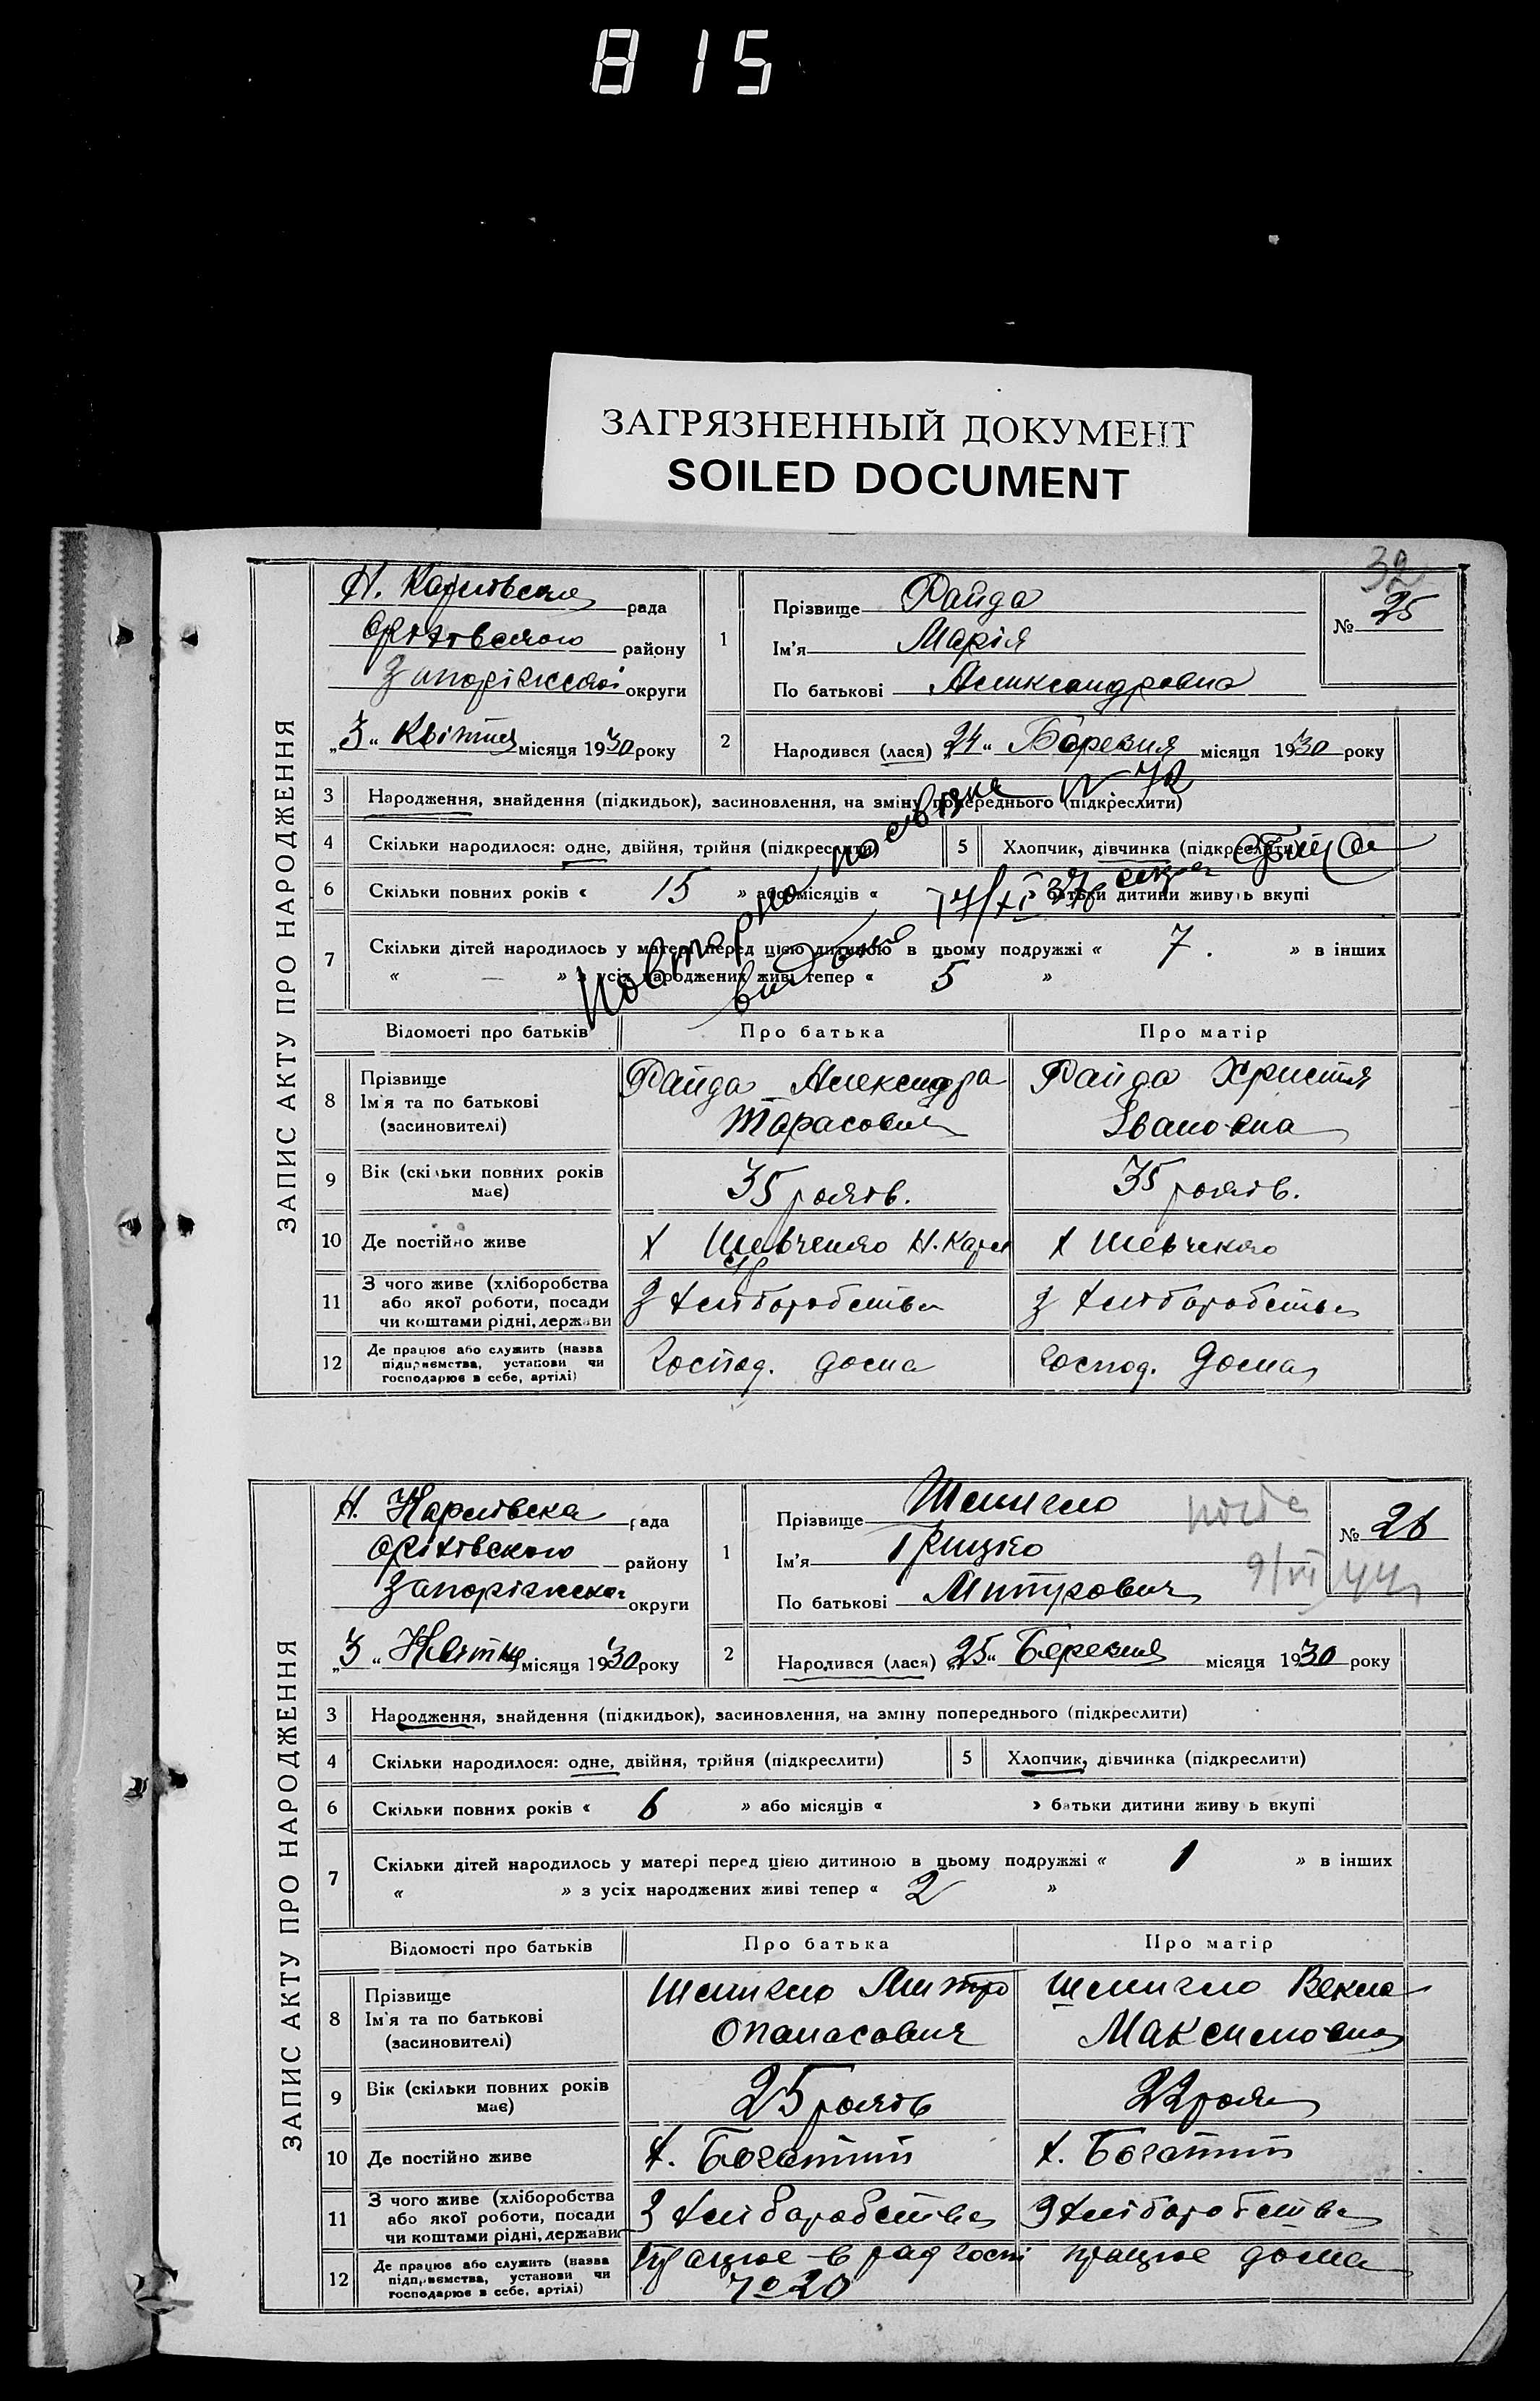 815
ЗАГРЯЗНЕННЫЙ ДОКУМЕНТ
SOILED DOCUMENT
32
ЗАПИС АКТУ ПРО НАРОДЖЕННЯ
Н. Карлівська рада
Оріхівського району
Запоріжської округи
„3“ Квітня місяця 1930 року
1
Прізвище Файда
Ім'я Марія
По батькові Александровна
№ 25
2 Народився (лася) „24“ Березня місяця 1930 року
3 Народження, знайдення (підкидьок), засиновлення, на зміну попереднього (підкреслити)
4 Скільки народилося: одне, двійня, трійня (підкреслити)
5 Хлопчик, дівчинка (підкреслити)
6 Скільки повних років « 15 » або місяців « батьки дитини живуть вкупі
7 Скільки дітей народилось у матері перед цією дитиною в цьому подружжі « 7. » в інших
« — » з усіх народжених живі тепер « 5 »
Повторно посвідка № 72
видана 17/XI 37р
Відомості про батьків Про батька Про матір
8 Прізвище Ім'я та по батькові (засиновителі)
Файда Александра Тарасович
Файда Христя Івановна
9 Вік (скільки повних років має) 35 років. 35 років.
10 Де постійно живе Х Шевченко Н. Карл Х Шевченко
11 З чого живе (хліборобства або якої роботи, посади чи коштами рідні, держави
З хліборобства З хліборобства
12 Де працює або служить (назва підприємства, установи чи господарює в себе, артілі)
Господ. дома Господ. дома
ЗАПИС АКТУ ПРО НАРОДЖЕННЯ
Н. Карлівська рада
Оріхівського району
Запоріжської округи
„3“ Квітня місяця 1930 року
1
Прізвище Шемигло
Ім'я Грицко
По батькові Митрович
№ 26
9/VI 44
2 Народився (лася) „25“ Березня місяця 1930 року
3 Народження, знайдення (підкидьок), засиновлення, на зміну попереднього (підкреслити)
4 Скільки народилося: одне, двійня, трійня (підкреслити)
5 Хлопчик, дівчинка (підкреслити)
6 Скільки повних років « 6 » або місяців « » батьки дитини живуть вкупі
7 Скільки дітей народилось у матері перед цією дитиною в цьому подружжі « 1 » в інших
« » з усіх народжених живі тепер « 2 »
Відомості про батьків Про батька Про матір
8 Прізвище Ім'я та по батькові (засиновителі)
Шемигло Митро Опанасович
Шемигло Векла Максимовна
9 Вік (скільки повних років має) 25 років 22 роки
10 Де постійно живе х. Богатий х. Богатий
11 З чого живе (хліборобства або якої роботи, посади чи коштами рідні, держави
З хліборобства З хліборобства
12 Де працює або служить (назва підприємства, установи чи господарює в себе, артілі)
Працює в рад госпі № 20
працює дома